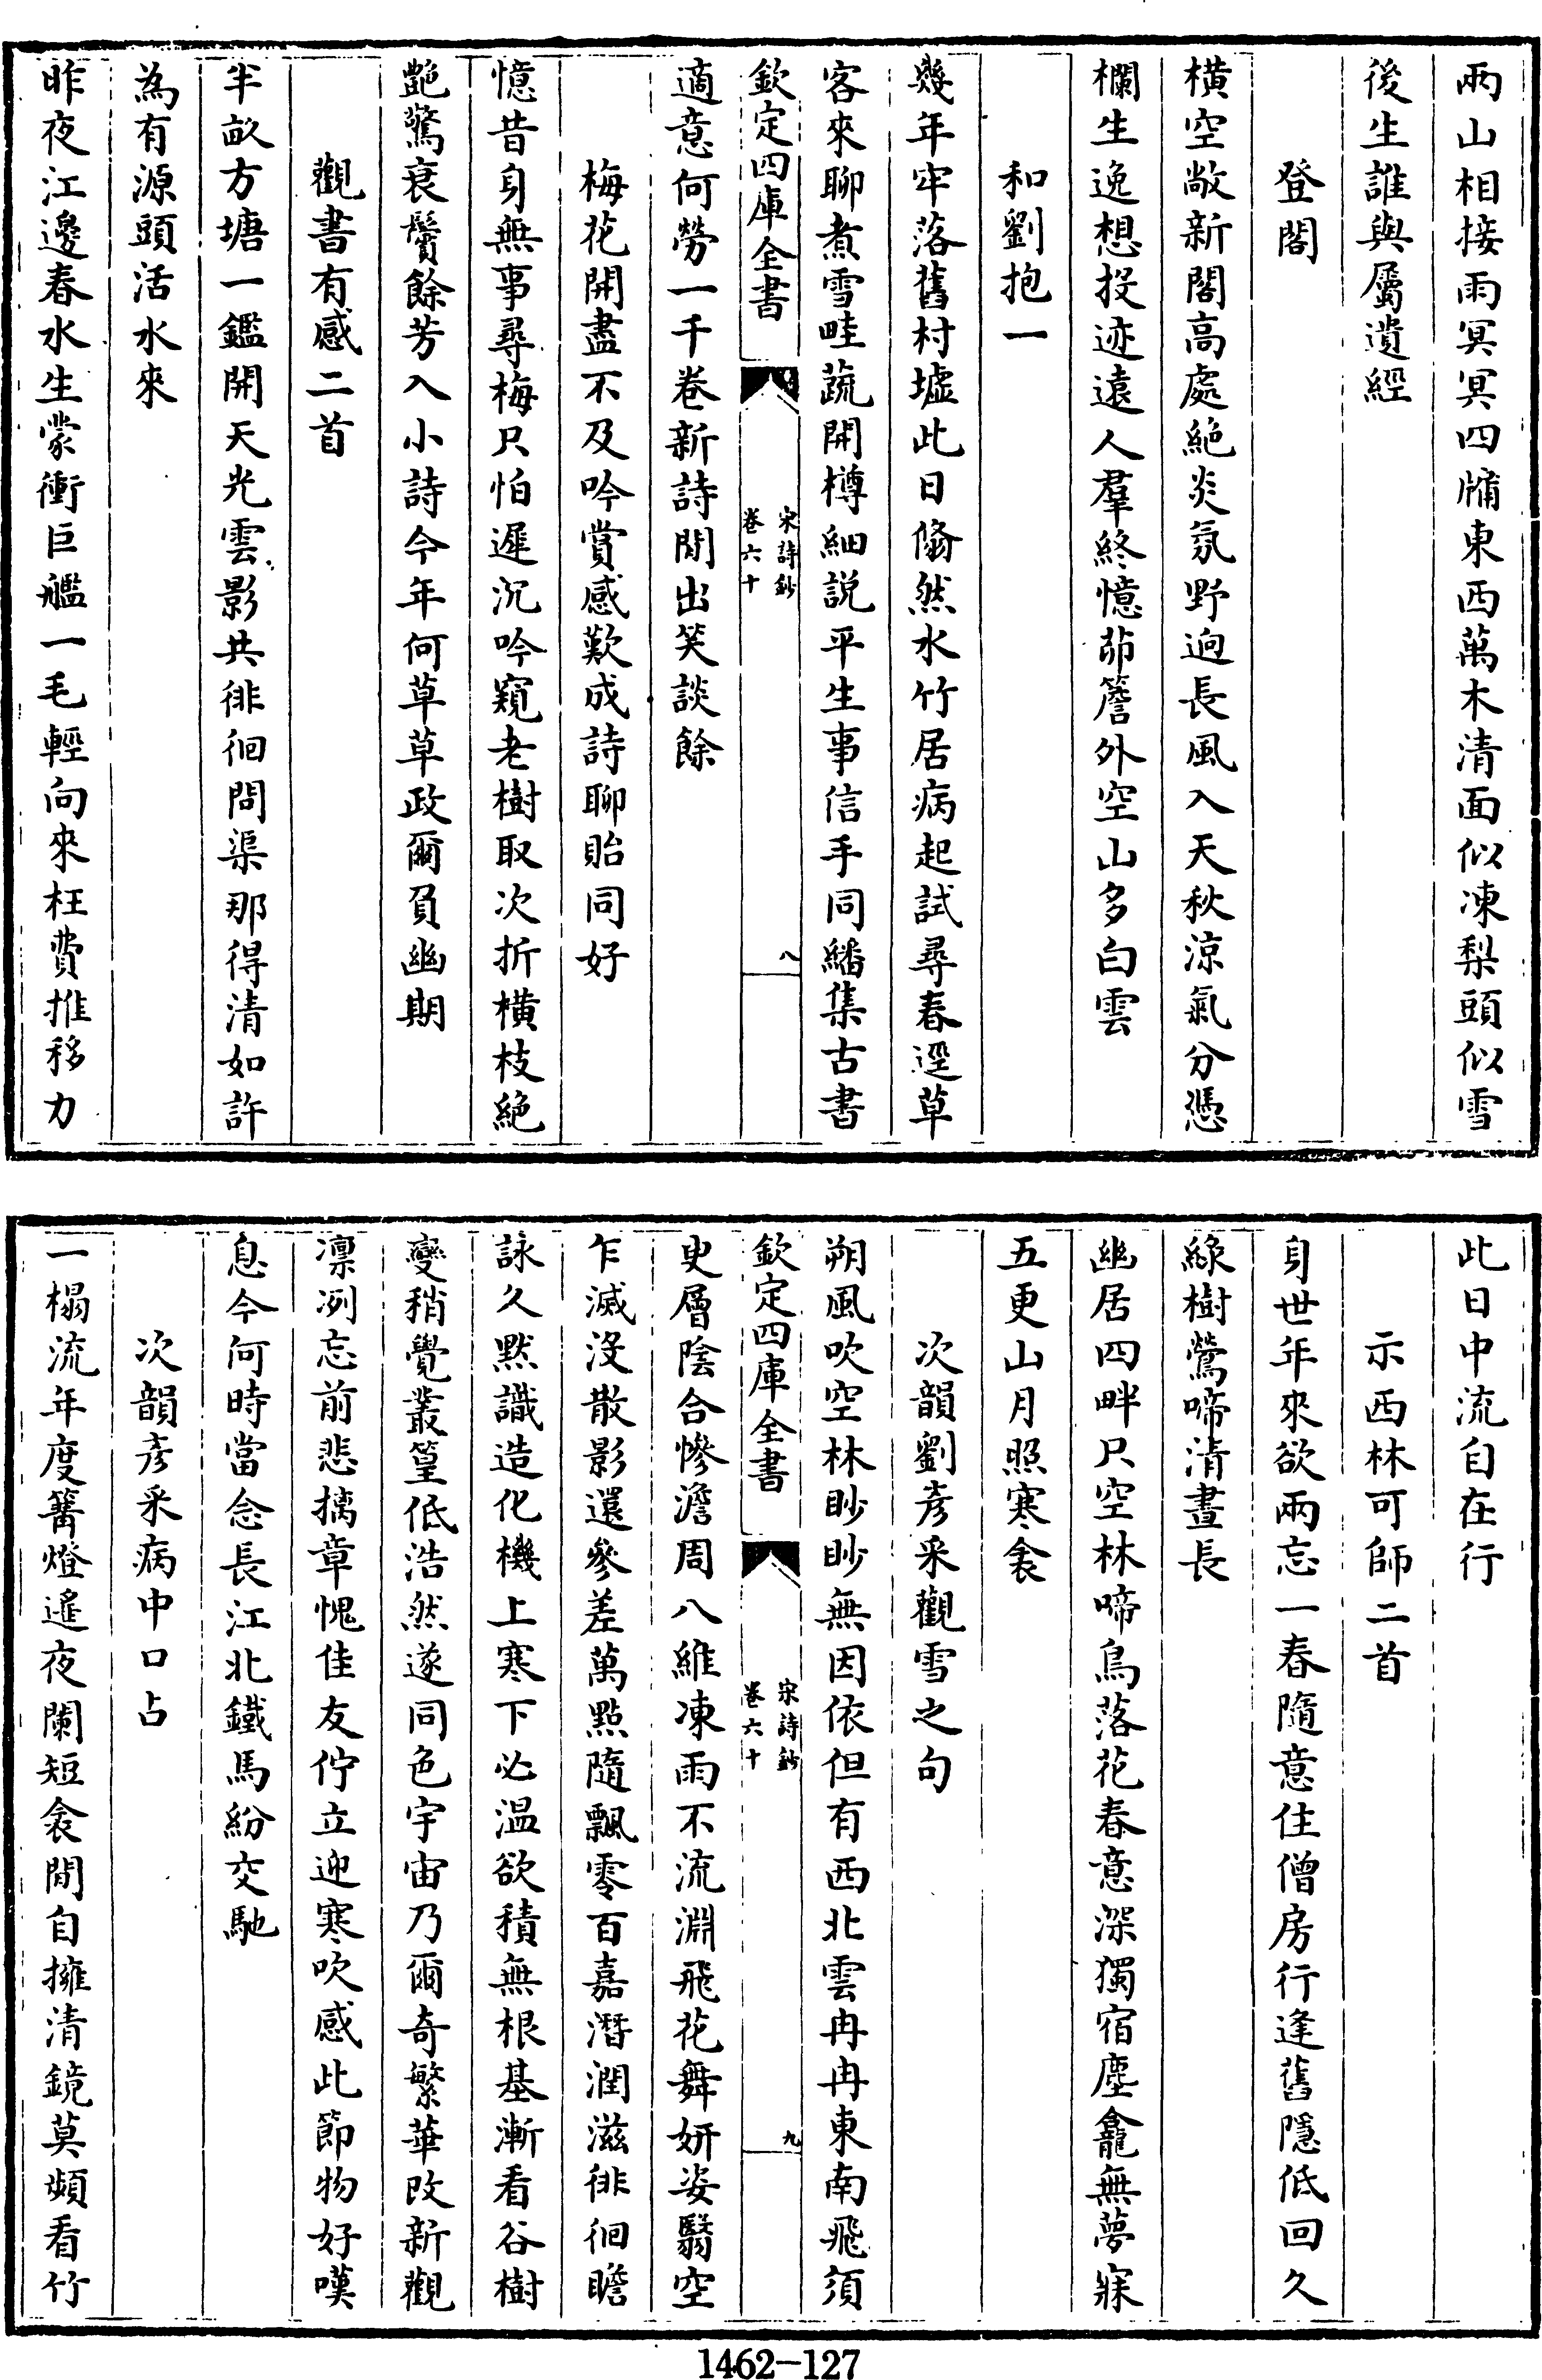 兩山相接雨冥冥四牖東西萬木清面似凍梨頭似雪
後生誰與屬遺經
登閣
橫空敞新閣高處絶炎氛野迥長風入天秋涼氣分憑
欄生逸想投迹遠人羣終憶茆簷外空山多白雲
和劉抱一
幾年牢落舊村墟此日翛然水竹居病起試尋春逕草
客來聊煮雪畦蔬開樽細説平生事信手同繙集古書
欽定四庫全書
宋詩鈔
卷六十
八
適意何勞一千卷新詩閒出笑談餘
梅花開盡不及吟賞感歎成詩聊貽同好
憶昔身無事尋梅只怕遲沉吟窺老樹取次折橫枝絶
艶驚衰鬢餘芳入小詩今年何草草政爾負幽期
觀書有感二首
半畝方塘一鑑開天光雲影共徘徊問渠那得清如許
為有源頭活水來
昨夜江邊春水生蒙衝巨艦一毛輕向來枉費推移力
此日中流自在行
示西林可師二首
身世年來欲兩忘一春隨意住僧房行逢舊隱低回久
綠樹鶯啼清晝長
幽居四畔只空林啼鳥落花春意深獨宿塵龕無夢寐
五更山月照寒衾
次韻劉彥采觀雪之句
朔風吹空林眇眇無因依但有西北雲冉冉東南飛須
欽定四庫全書
宋詩鈔
卷六十
九
臾層陰合慘澹周八維凍雨不流淵飛花舞妍姿翳空
乍滅沒散影還參差萬點隨飄零百嘉潛潤滋徘徊瞻
詠久黙識造化機上寒下必温欲積無根基漸看谷樹
變稍覺叢篁低浩然遂同色宇宙乃爾奇繁華改新觀
凛冽忘前悲摛章愧佳友佇立迎寒吹感此節物好嘆
息今何時當念長江北鐵馬紛交馳
次韻彥采病中口占
一榻流年度篝燈遙夜闌短衾閒自擁清鏡莫頻看竹
1462-127